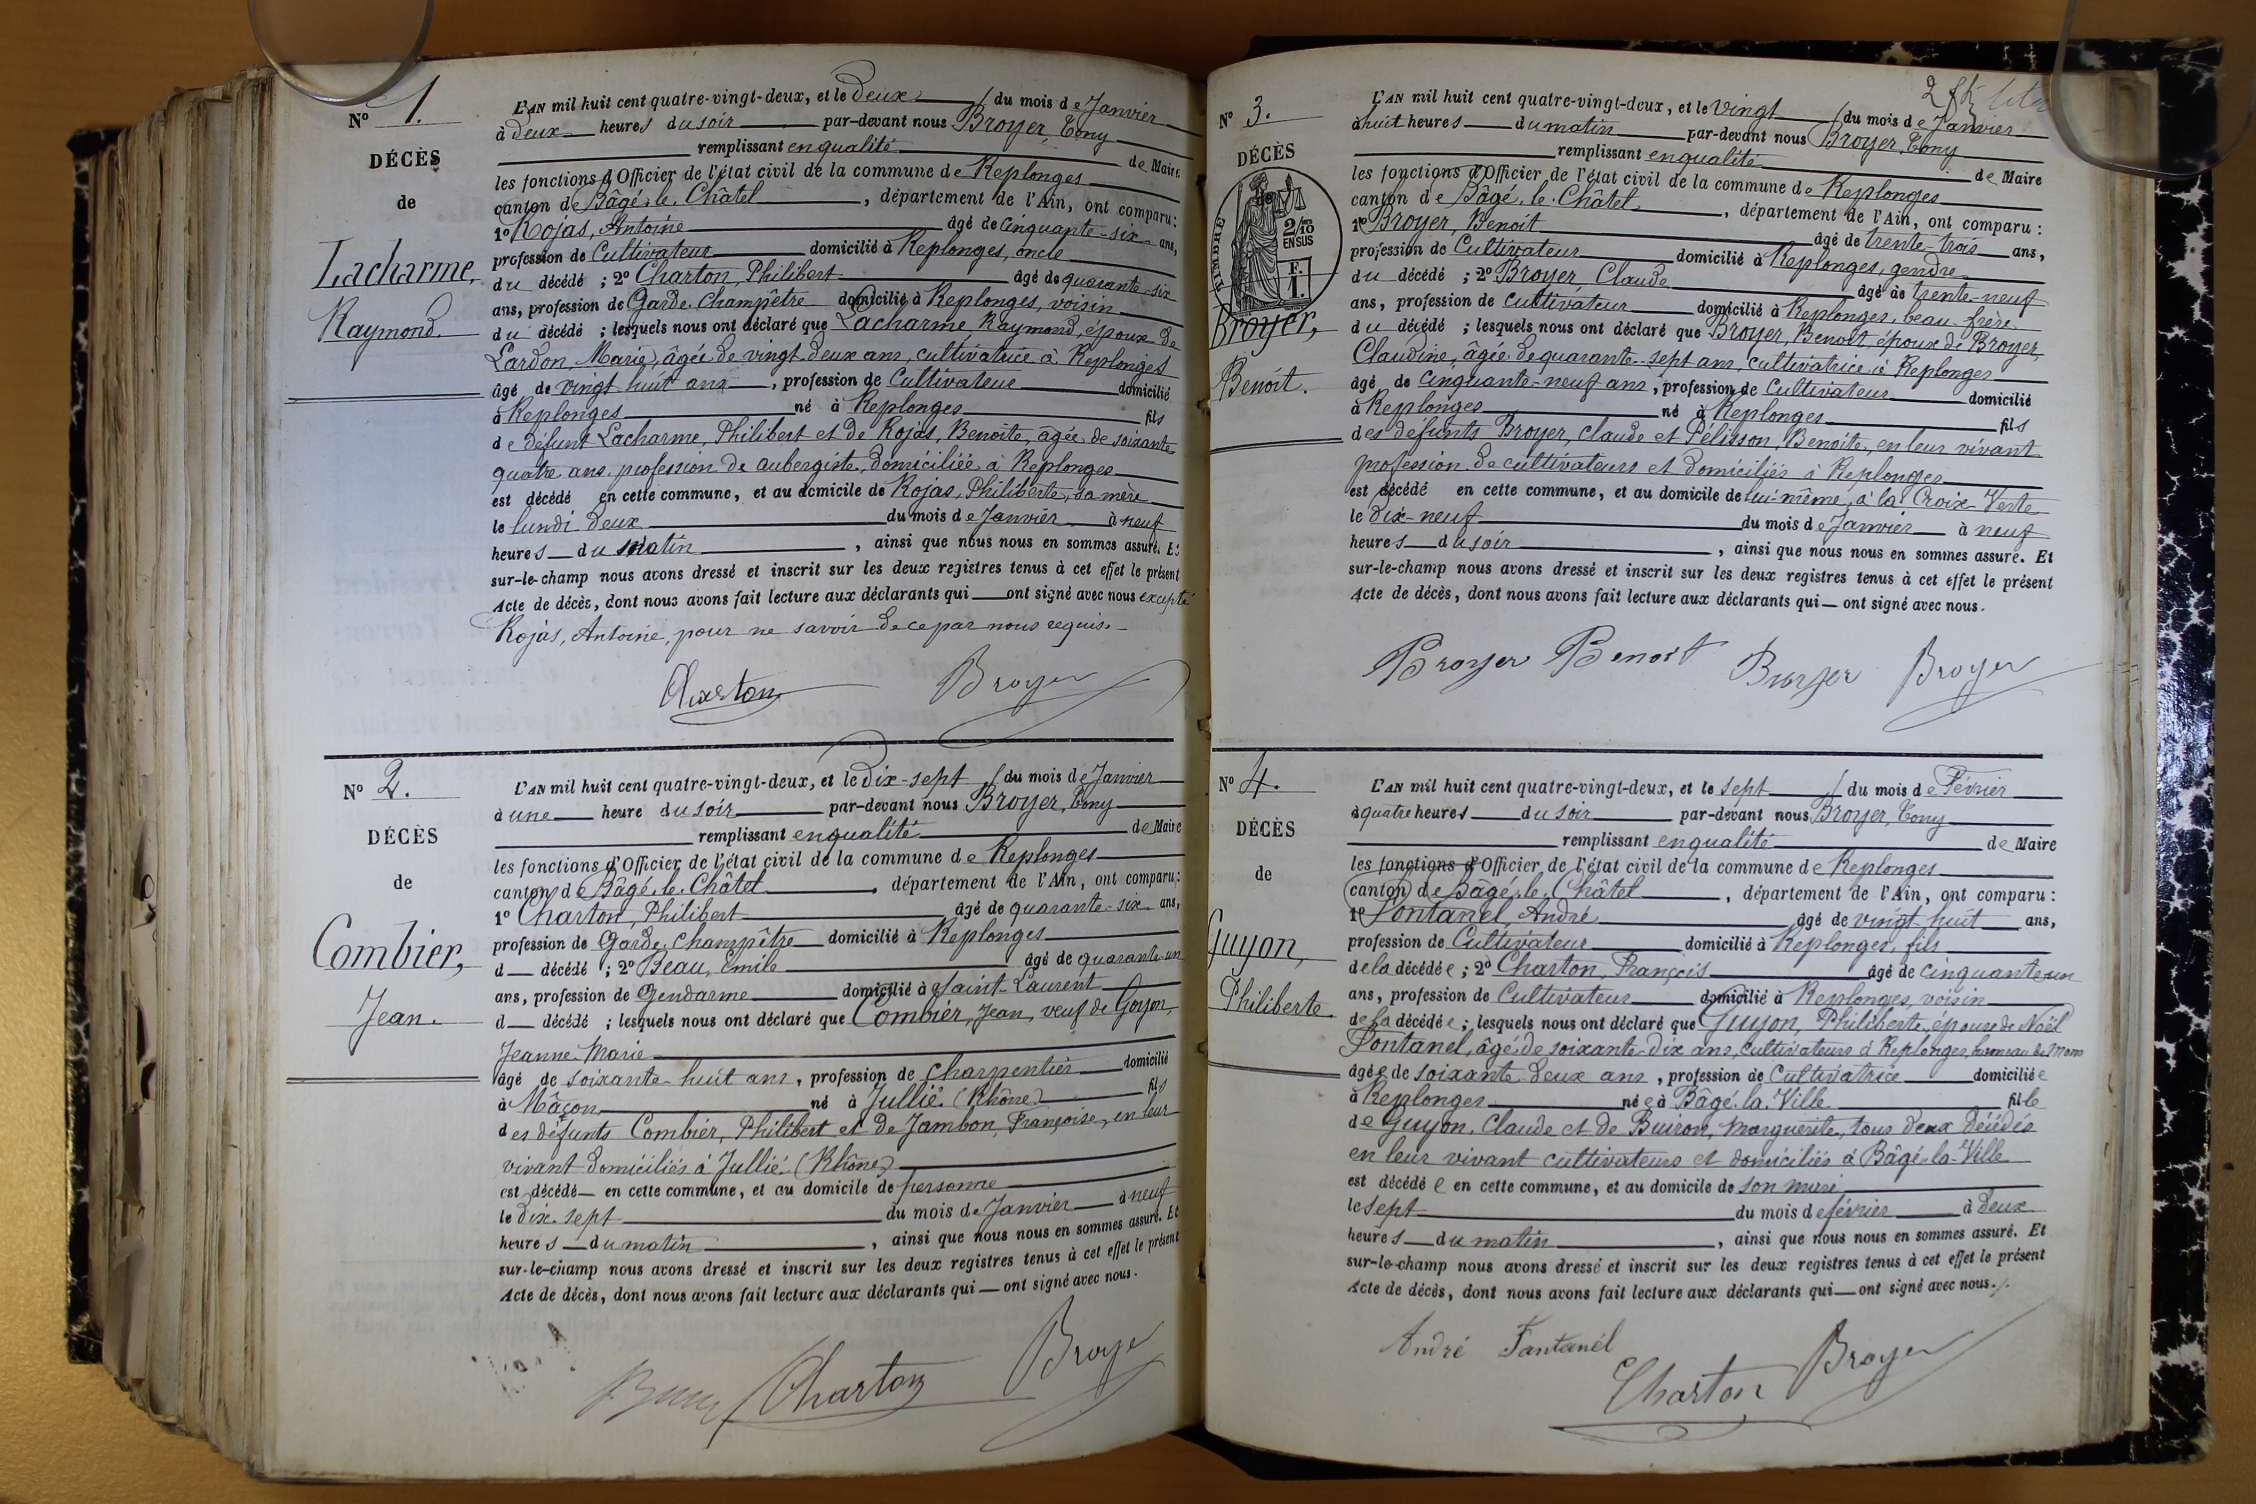 N° 1.
DÉCÈS
de
Lacharme,
Raymond.
L'AN mil huit cent quatre-vingt-deux, et le deux du mois de Janvier
à deux heures du soir par-devant nous Broyer, Tony
remplissant en qualité de Maire
les fonctions d'Officier de l'état civil de la commune de Replonges
canton de Bâgé-le-Châtel, département de l'Ain, ont comparu:
1° Rojas, Antoine âgé de cinquante-six ans,
profession de Cultivateur domicilié à Replonges, oncle
du décédé ; 2° Charton, Philibert âgé de quarante-six
ans, profession de Garde-champêtre domicilié à Replonges, voisin
du décédé ; lesquels nous ont déclaré que Lacharme, Raymond, époux de
Lardon, Marie, âgée de vingt-deux ans, cultivatrice à Replonges
âgé de vingt-huit ans, profession de Cultivateur domicilié
à Replonges né à Replonges fils
de défunt Lacharme, Philibert et de Rojas, Benoîte, âgée de soixante
quatre ans, profession de aubergiste, domiciliée à Replonges
est décédé en cette commune, et au domicile de Rojas, Philiberte, sa mère
le lundi deux du mois de Janvier à neuf
heures du matin, ainsi que nous nous en sommes assuré. Et
sur-le-champ nous avons dressé et inscrit sur les deux registres tenus à cet effet le présent
Acte de décès, dont nous avons fait lecture aux déclarants qui ont signé avec nous excepté
Rojas, Antoine, pour ne savoir de ce par nous requis.
Charton Broyer
N° 2.
DÉCÈS
de
Combier,
Jean.
L'AN mil huit cent quatre-vingt-deux, et le dix-sept du mois de Janvier
à une heure du soir par-devant nous Broyer, Tony
remplissant en qualité de Maire
les fonctions d'Officier de l'état civil de la commune de Replonges
canton de Bâgé-le-Châtel, département de l'Ain, ont comparu:
1° Charton, Philibert âgé de quarante-six ans,
profession de Garde-champêtre domicilié à Replonges
d décédé ; 2° Beau, Emile âgé de quarante-un
ans, profession de Gendarme domicilié à Saint-Laurent
d décédé ; lesquels nous ont déclaré que Combier, Jean, veuf de Goyon,
Jeanne-Marie
âgé de soixante-huit ans, profession de charpentier domicilié
à Mâcon né à Jullié (Rhône) fils
des défunts Combier, Philibert et de Jambon, Françoise, en leur
vivant domiciliés à Jullié (Rhône)
est décédé en cette commune, et au domicile de personne
le dix-sept du mois de Janvier à neuf
heures du matin, ainsi que nous nous en sommes assuré. Et
sur-le-champ nous avons dressé et inscrit sur les deux registres tenus à cet effet le présent
Acte de décès, dont nous avons fait lecture aux déclarants qui ont signé avec nous.
Charton Broyer
N° 3.
DÉCÈS
de
TIMBRE
2/10
EN SUS
F.
1.
Broyer,
Benoit.
L'AN mil huit cent quatre-vingt-deux, et le vingt du mois de Janvier
à huit heures du matin par-devant nous Broyer, Tony
remplissant en qualité de Maire
les fonctions d'Officier de l'état civil de la commune de Replonges
canton de Bâgé-le-Châtel, département de l'Ain, ont comparu :
1° Broyer, Benoit âgé de trente-trois ans,
profession de Cultivateur domicilié à Replonges, gendre
du décédé ; 2° Broyer, Claude âgé de trente-neuf
ans, profession de cultivateur domicilié à Replonges, beau-frère
du décédé ; lesquels nous ont déclaré que Broyer, Benoit, époux de Broyer,
Claudine, âgée de quarante-sept ans, cultivatrice à Replonges
âgé de cinquante-neuf ans, profession de Cultivateur domicilié
à Replonges né à Replonges fils
des défunts Broyer, Claude et Pélisson, Benoite, en leur vivant
profession de cultivateurs et domiciliés à Replonges
est décédé en cette commune, et au domicile de lui-même, à la Croix-Verte
le dix-neuf du mois de Janvier à neuf
heures du soir, ainsi que nous nous en sommes assuré. Et
sur-le-champ nous avons dressé et inscrit sur les deux registres tenus à cet effet le présent
Acte de décès, dont nous avons fait lecture aux déclarants qui ont signé avec nous.
Broyer Benoit Broyer Broyer
N° 4.
DÉCÈS
de
Guyon,
Philiberte
L'AN mil huit cent quatre-vingt-deux, et le sept du mois de Février
à quatre heures du soir par-devant nous Broyer, Tony
remplissant en qualité de Maire
les fonctions d'Officier de l'état civil de la commune de Replonges
canton de Bâgé-le-Châtel, département de l'Ain, ont comparu :
1° Fontanel, André âgé de vingt-huit ans,
profession de Cultivateur domicilié à Replonges, fils
de la décédée ; 2° Charton, François âgé de cinquante-un
ans, profession de Cultivateur domicilié à Replonges, voisin
de la décédée ; lesquels nous ont déclaré que Guyon, Philiberte, épouse de Noël
Fontanel, âgé de soixante-dix ans, cultivateurs à Replonges, hameau de
âgée de soixante-deux ans, profession de Cultivatrice domiciliée
à Replonges née à Bâgé-la-Ville fille
de Guyon, Claude et de Buiron, Marguerite, tous deux décédés
en leur vivant cultivateurs et domiciliés à Bâgé-la-Ville
est décédée en cette commune, et au domicile de son mari
le sept du mois de février à deux
heures du matin, ainsi que nous nous en sommes assuré. Et
sur-le-champ nous avons dressé et inscrit sur les deux registres tenus à cet effet le présent
Acte de décès, dont nous avons fait lecture aux déclarants qui ont signé avec nous.
André Fantanél Broyer
Charton